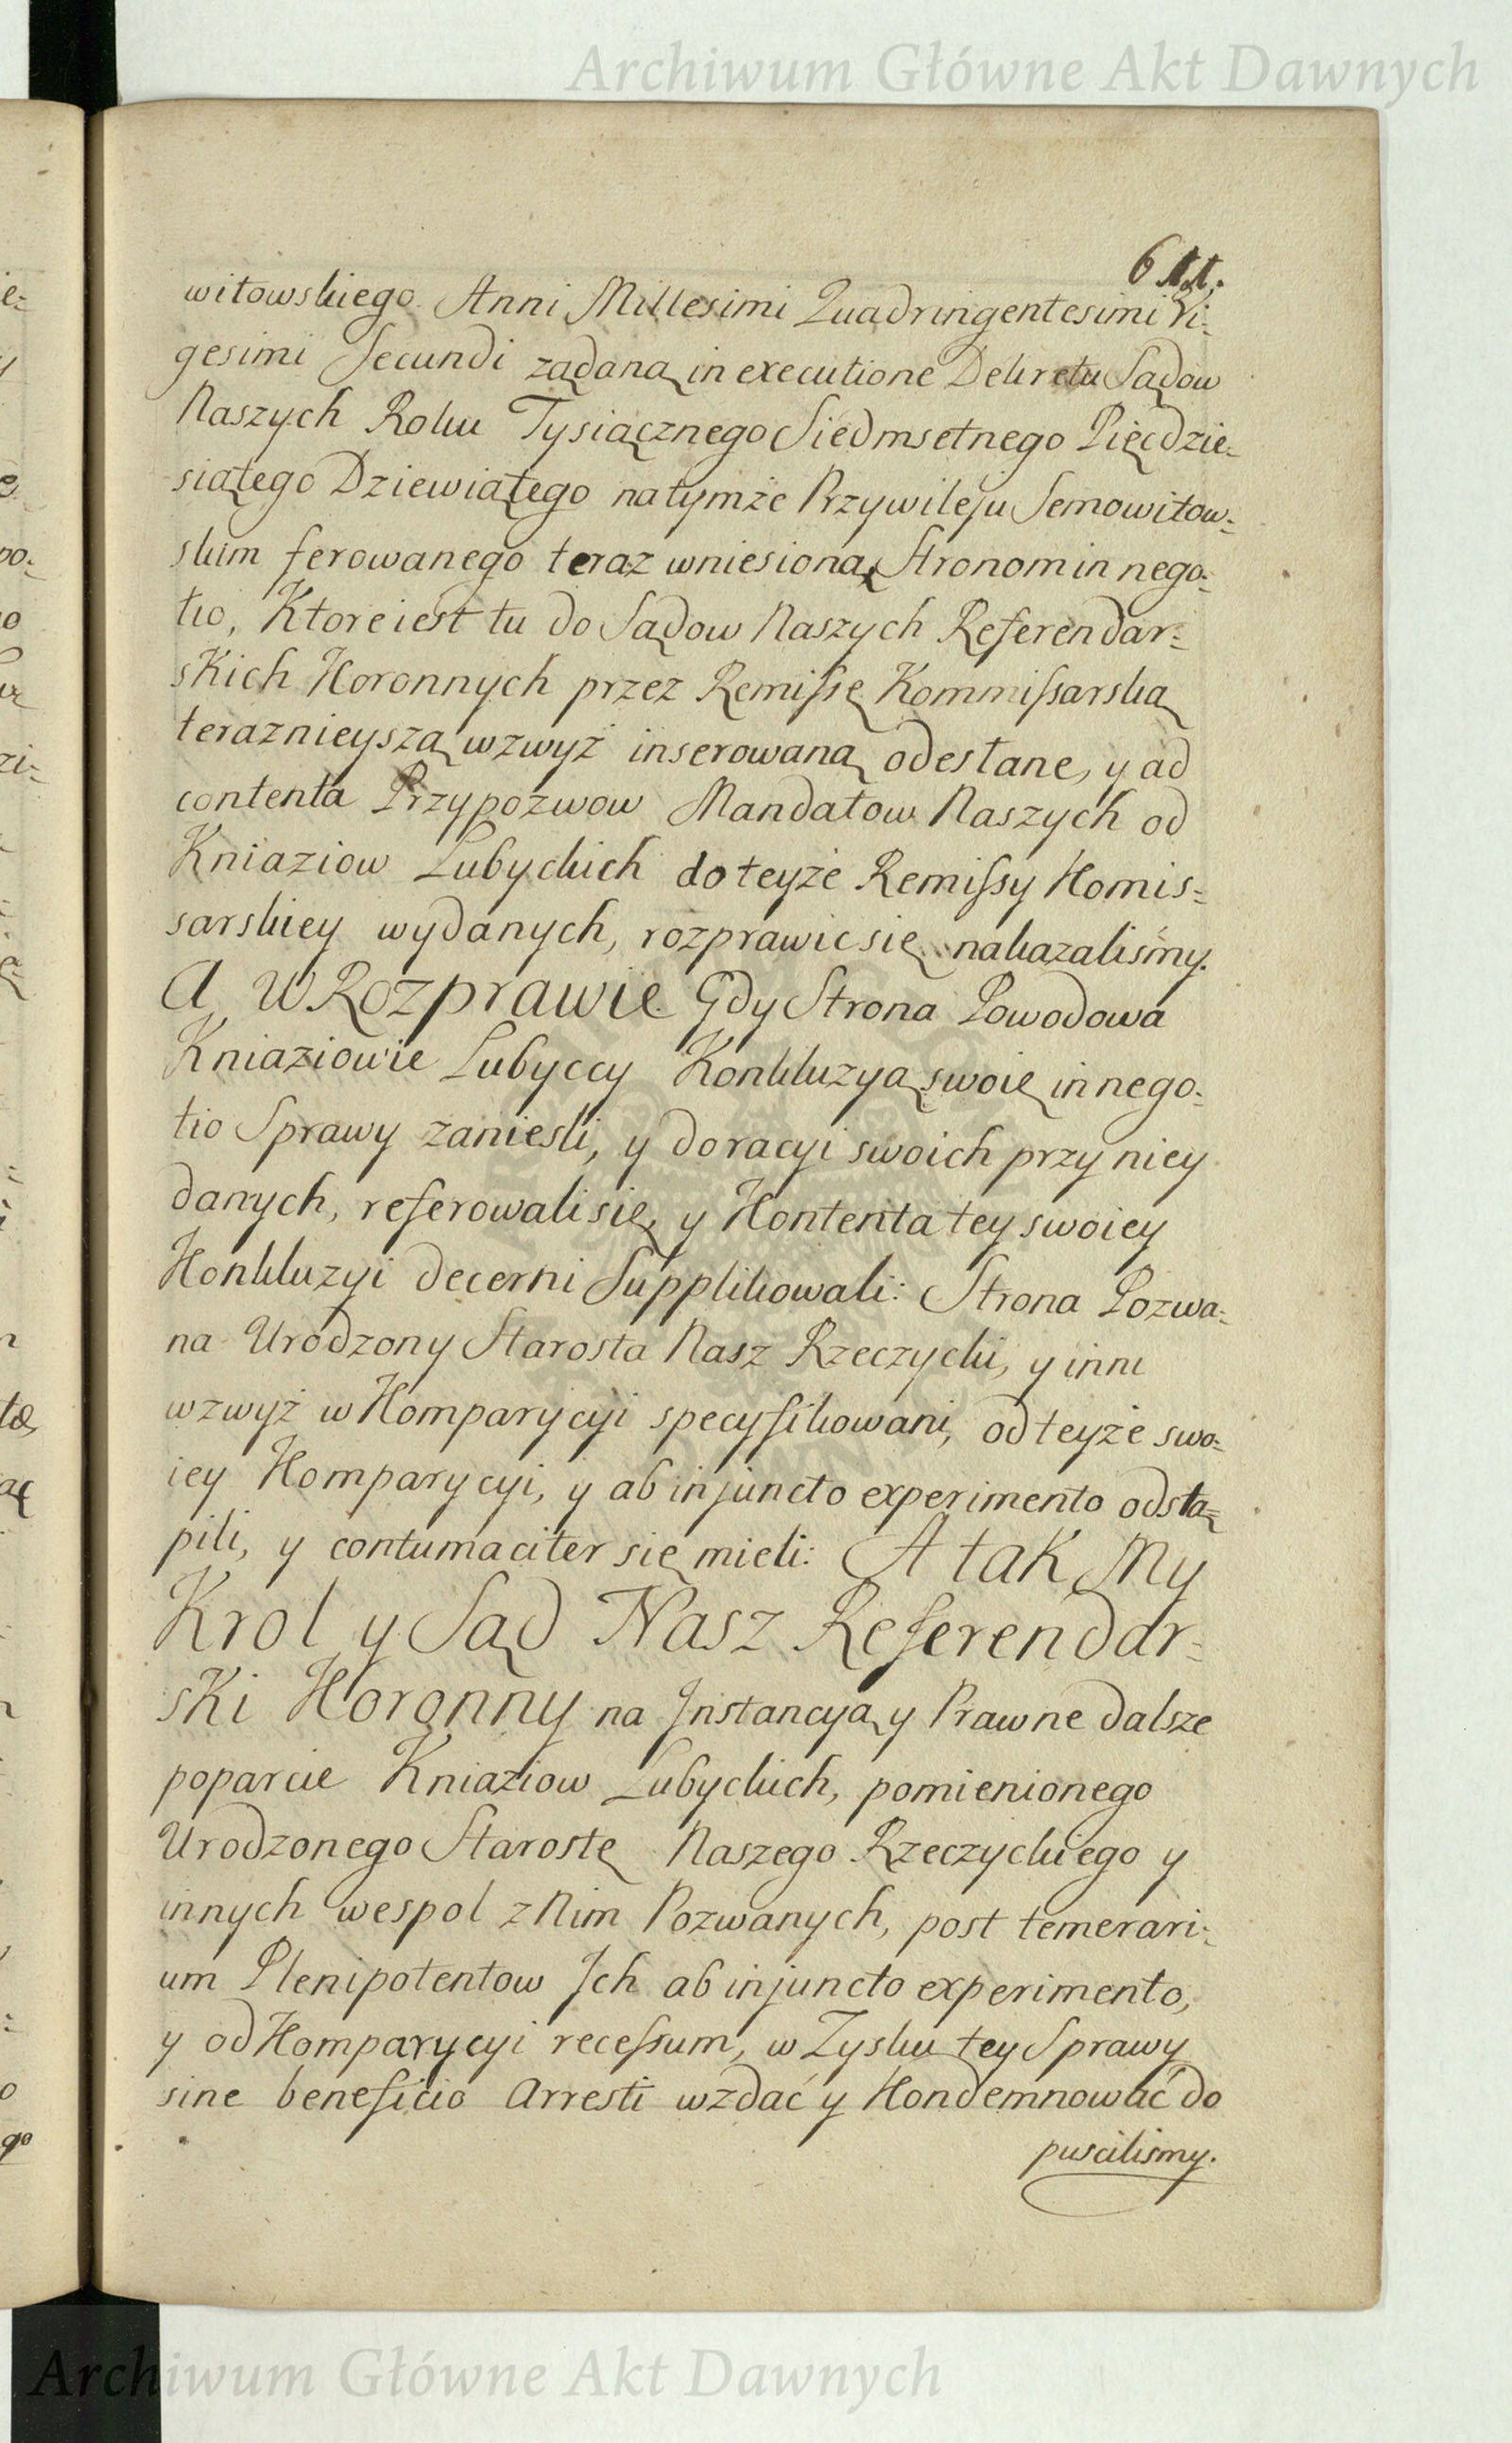 Archiwum Główne Akt Dawnych
witowskiego Anni Millesimi Quadringentesimi Vi=
gesimi Secundi ządaną in executione Dekretu Sądow
Naszych Roku Tysiącznego Siedmsetnego Pięcdzie=
siątego Dziewiątego na tymże Przywileju Semowitow=
skim ferowanego teraz wniesioną, Stronom in nego=
tio, Ktore iest tu do Sądow Naszych Referendar=
skich Koronnych przez Remissę Kommissarską
teraznieyszą wzwyż inserowaną odesłane, y ad
contenta Przypozwow Mandatow Naszych od
Kniaziow Lubyckich do teyże Remissy Komis=
sarskiey wydanych, rozprawic się nakazaliśmy.
A w Rozprawie Gdy Strona Powodowa
Kniaziowie Lubyccy Konkluzyą swoię in nego=
tio Sprawy zaniesli, y do racyi swoich przy niey
danych, referowali się, y Kontenta tey swoiey
Konkluzyi decerni Supplikowali: Strona Pozwa=
na Urodzony Starosta Nasz Rzeczycki, y inni
wzwyż w Komparycyi specyfikowani, od teyże swo=
iey Komparycyi, y ab injuncto experimento odstą=
pili, y contumaciter się mieli: A tak My
Krol y Sąd Nasz Referendar=
ski Koronny na Jnstancyą y Prawne dalsze
poparcie Kniaziow Lubyckich, pomienionego
Urodzonego Starostę Naszego Rzeczyckiego y
innych wespol z Nim Pozwanych, post temerari=
um Plenipotentow Jch ab injuncto experimento,
y od Komparycyi recessum, w Zysku tey Sprawy
sine beneficio Arresti wzdać y Kondemnować do
puscilismy.
Archiwum Główne Akt Dawnych